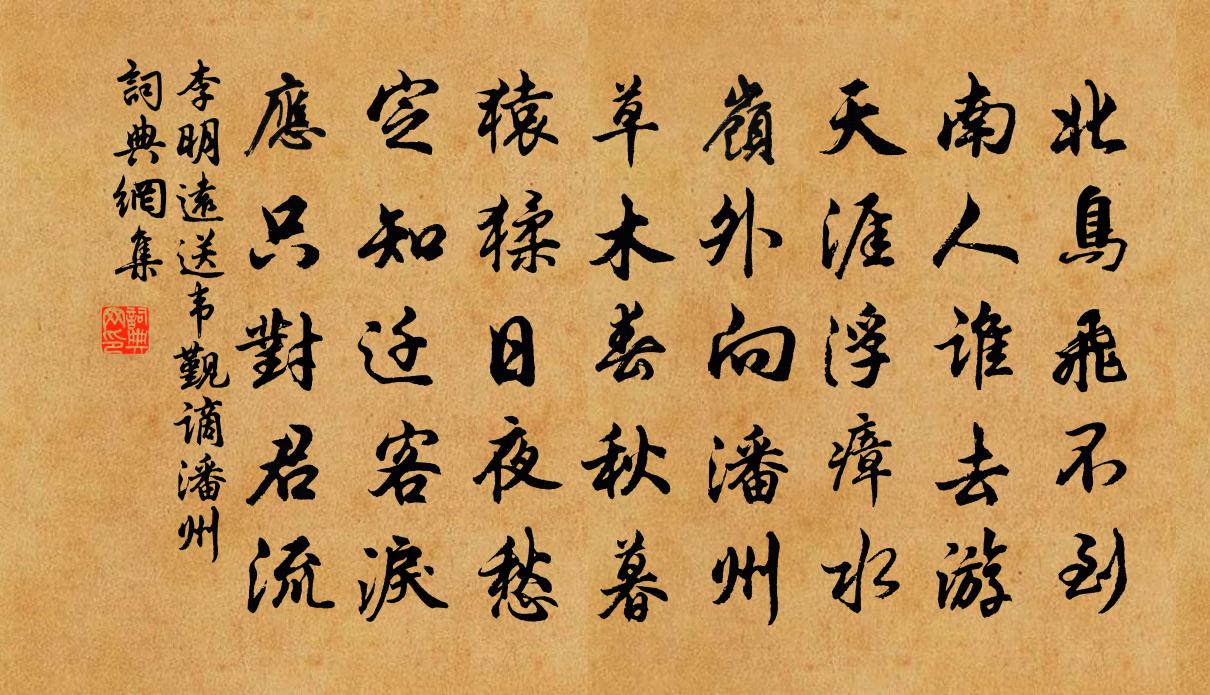 北鳥飛不到
南人誰去游
天涯浮瘴水
嶺外向潘州
草木春秋暮
猿猱日夜愁
定知迁客淚
應只對君流
李明遠送韦觐谪潘州
詞典網集
詞典网印